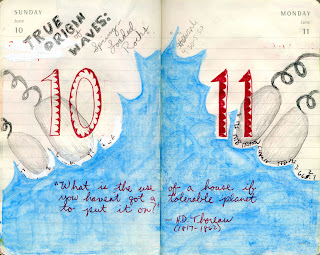 SUNDAY
June
10
TRUE
ORIGIN
of
WAVES:
Spring-
Loaded
Rocks
MONDAY
June
11
10
11
"What is the use of a house if
you haven't got a tolerable planet
to put it on?"
HD Thoreau
(1817-1862)